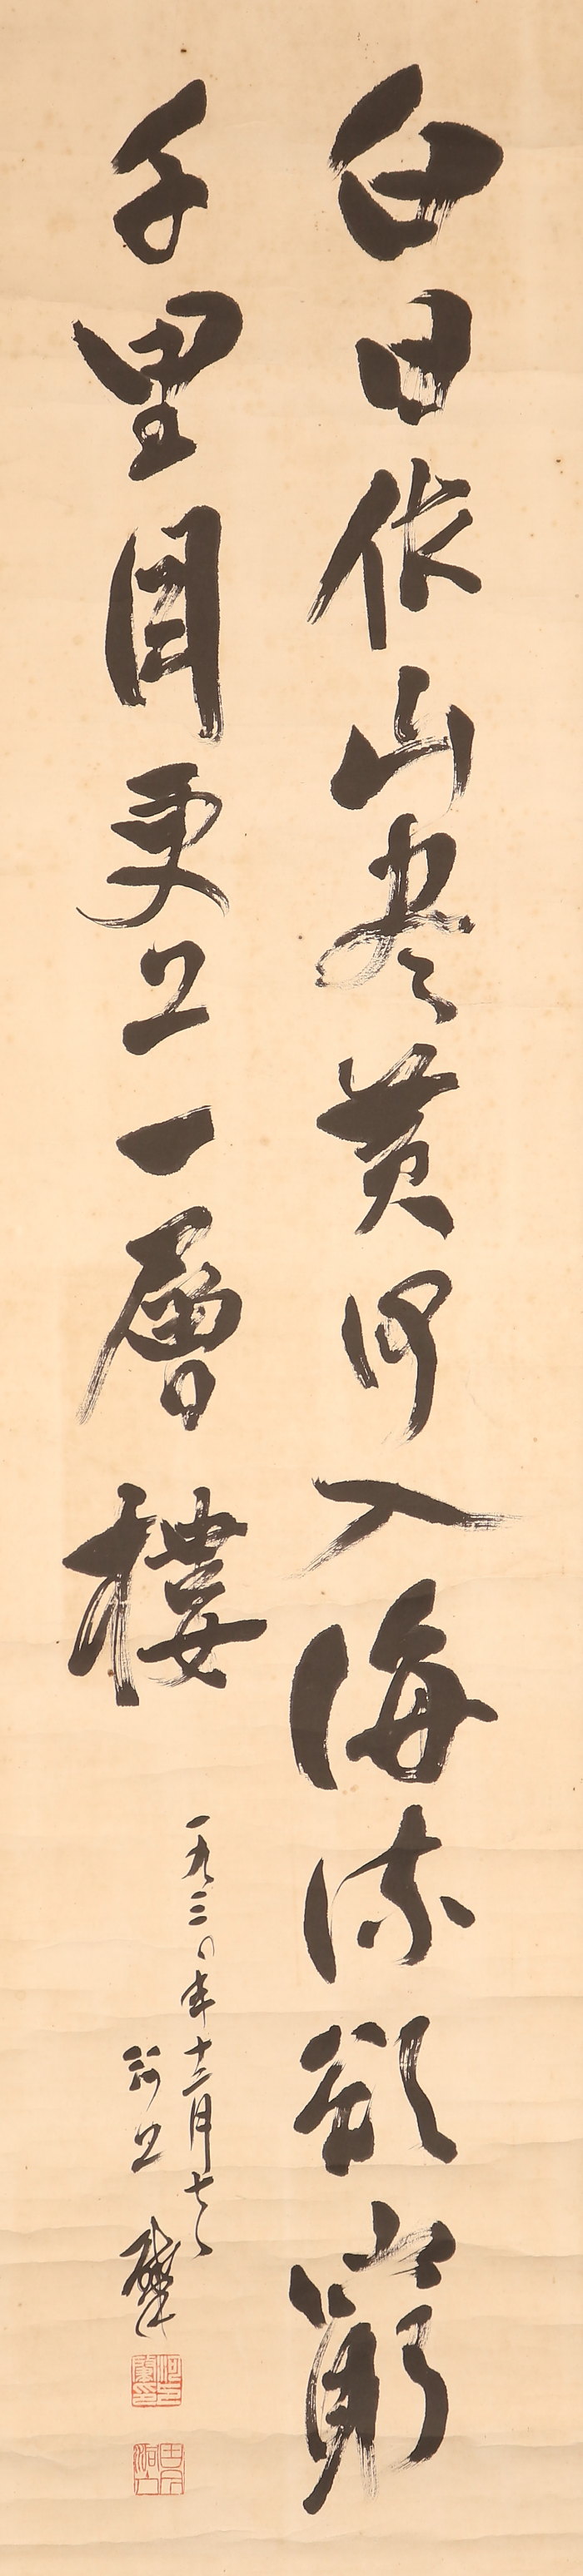 白日依山尽黄河入海流欲窮
千里目更上一層樓
一九三〇年十二月七日
河上肇